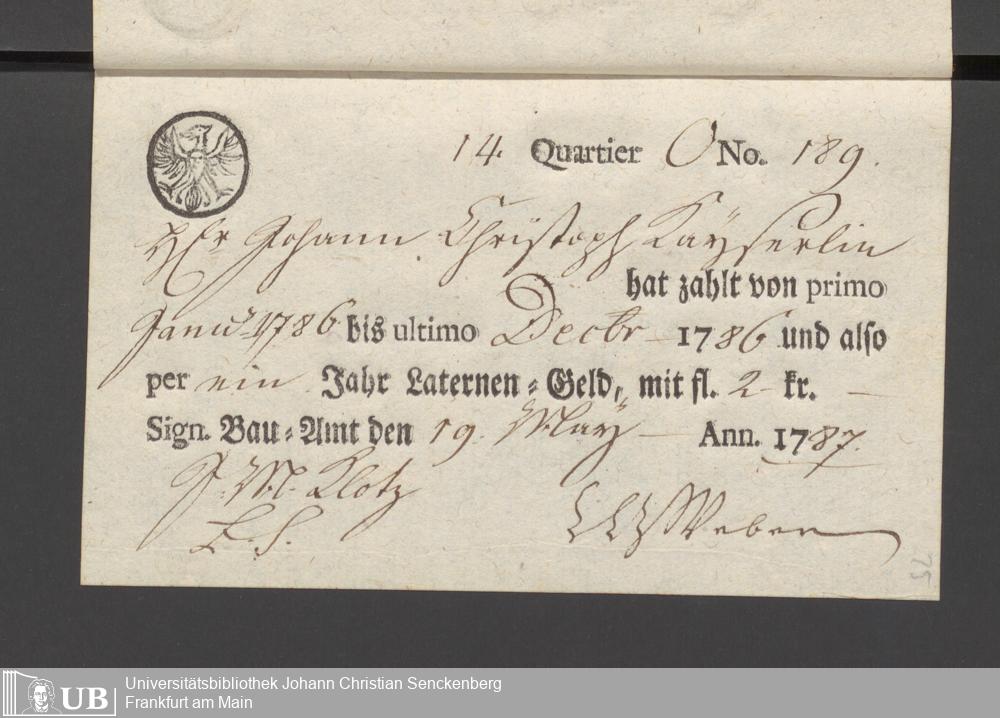 14. Quartier O No. 189.
Hr Johann Christoph Kayserlin
hat zahlt von primo
Janu 1786 bis ultimo Decbr 1786 und also
per ein Jahr Laternen-Geld, mit fl. 2 kr. —
Sign. Bau-Amt den 19. May — Ann. 1787.
J. M. Klotz
Weber
75
UB
Universitätsbibliothek Johann Christian Senckenberg
Frankfurt am Main